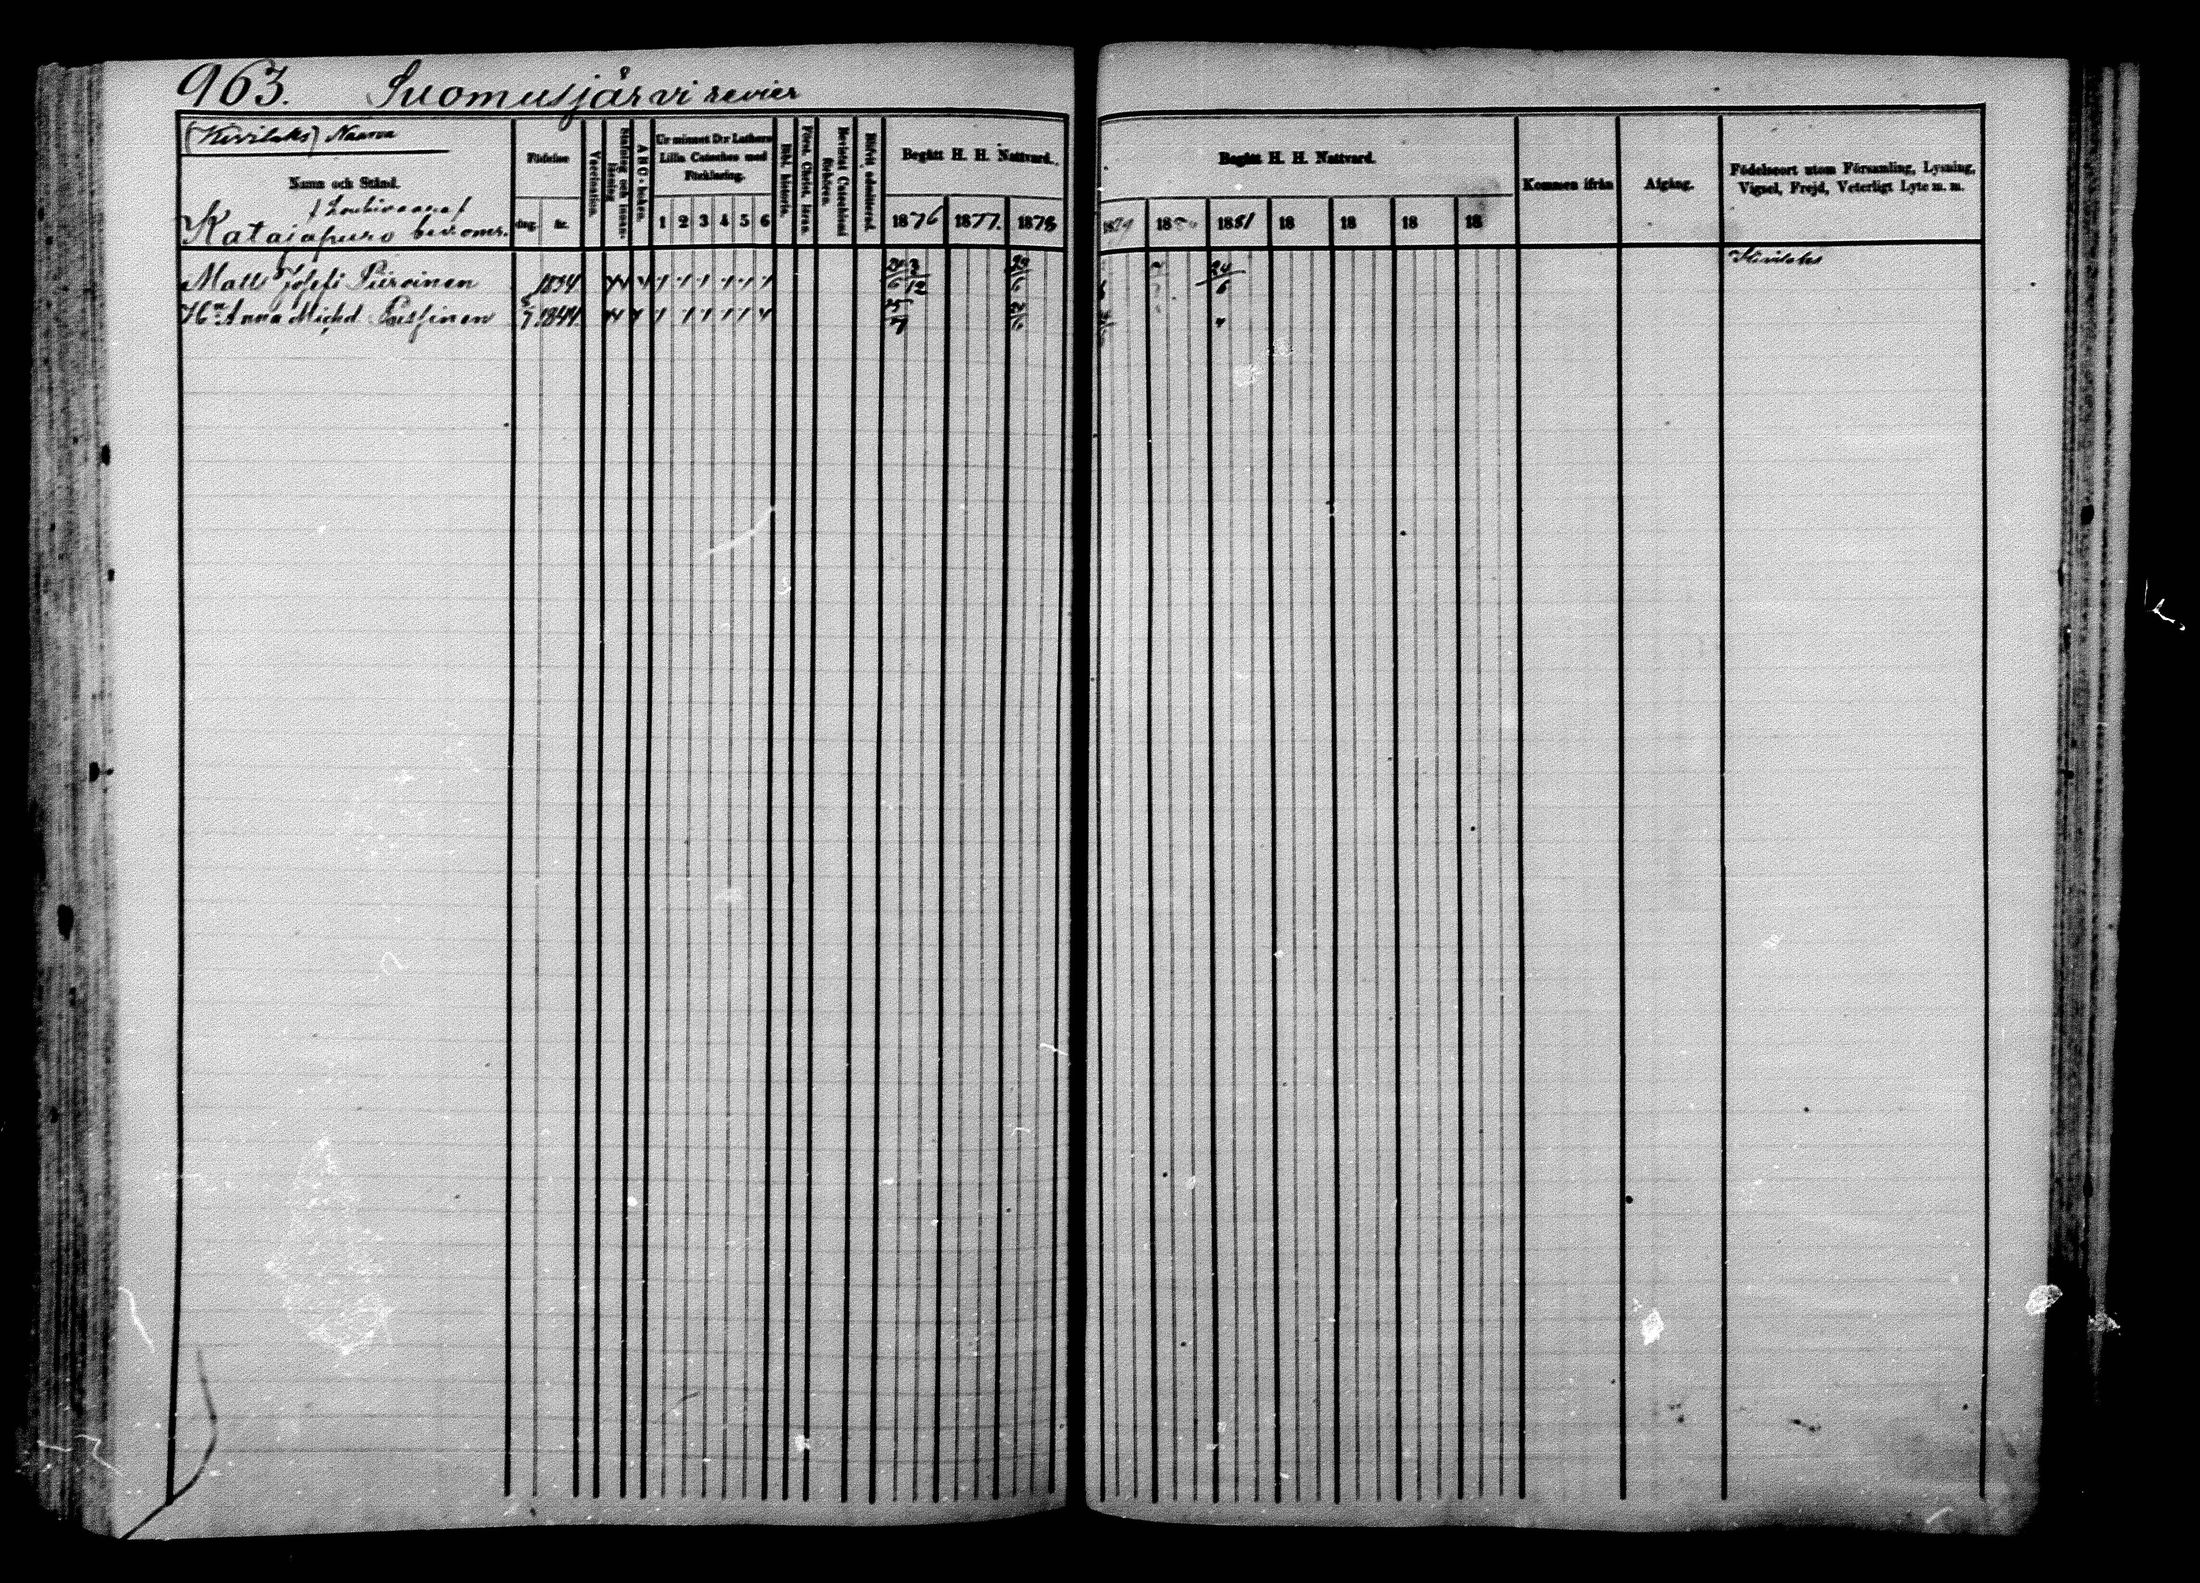 963. Suomusjärvi revier
(Kivilaks) Naarva
Namn och Stånd.
Katajapuro
Födelse
dag. år.
Vaccination.
Stafning och innan-läsning
A B C-boken.
Ur minnet D:r Luthers Lilla Cateches med Förklaring.
1 2 3 4 5 6
Bibl. historia.
Först. Christ. läran.
Bevistat Catechismi förhören.
Blifvit admitterad.
Begått H. H. Nattvard.
1876 1877. 1878
Begått H. H. Nattvard.
1879 1880 1881 18 18 18 18
Kommen ifrån
Afgång.
Födelseort utom Församling, Lysning, Vigsel, Frejd, Veterligt Lyte m. m.
Matts Josefi Piiroinen 1834 24/6 3/12 24/6 Kivilaks
Hu Anna Michel 7 1844